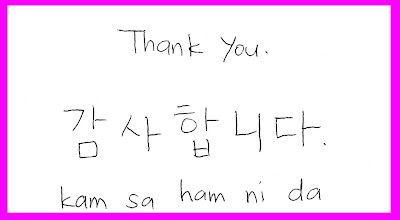 Thank You.
감사합니다.
kam sa ham ni da